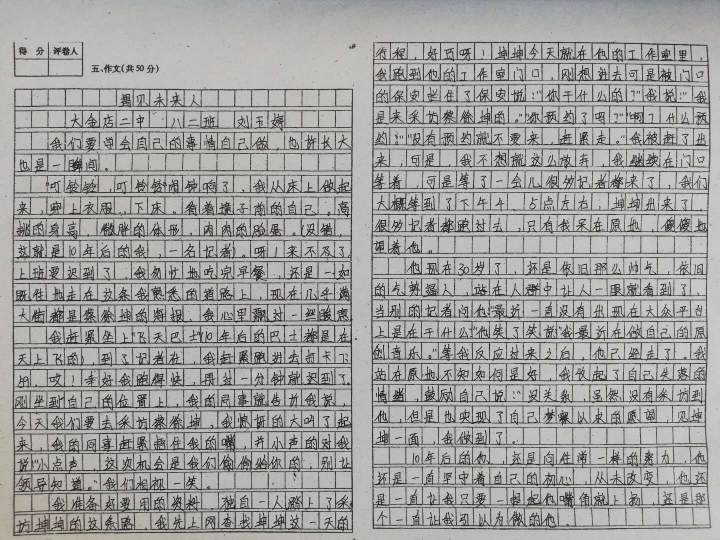 得 分 评卷人
五、作文(共50分)
遇见未来人
大金店二中 八二班 刘玉婷
我们要学会自己的事情自己做，也许长大
也是一瞬间。
"叮铃铃，叮铃铃"闹铃响了，我从床上做起
来，穿上衣服，下床。看着镜子前的自己。高
挑的身高，微胖的体形，肉肉的脸蛋。(没错，
这就是10年后的我，一名记者)。呀！来不及了，
上班要迟到了，我匆忙地吃完早餐，还是一如
既往地走在这条我熟悉的道路上，现在几乎满
大街都是蔡徐坤的海报，我心里飘过一丝
我赶紧坐上"飞天巴士"(10年后的巴士都是在
天上飞的)，到了记者在，我赶紧跑进去打卡下
，哎！幸好我跑得快，再过一分钟就迟到了。
刚坐到自己的位置上，我的同事就告诉我说，
今天我们要去采访蔡徐坤，我惊讶的大叫了起
来，我的同事赶紧捂住我的嘴，并小声的对我
说"小点声，这次机会是我们偷偷给你的，别让
领导知道。"我们相视一笑。
我准备好要用的资料，独自一人踏上了采
访坤坤的这条路，我先上网查找坤坤这一天的
行程，好巧呀！坤坤今天就在他的工作室里，
我跑到他的工作室门口，刚想进去可是被门口
的保安拦住了保安说："你干什么的？"我说："我
是来采访蔡徐坤的。""你预约了吗？""啊？什么预
约？""没有预约就不要来，赶紧走。"我被赶了出
来，可是，我不想就这么放弃，我继续在门口
等着，可是等了一会儿很多记者都来了，我们
大概等到了下午4、5点左右，坤坤出来了，
很多记者都跑过去，只有我呆在原地，傻傻地
望着他。
他现在30岁了，还是依旧那么帅气，依旧
的气势逼人，站在人群中让人一眼就看到了，
当别的记者问他"最近一直没有出现在大众平台
上是在干什么"他笑了笑说"我最近在做自己的原
创音乐。"等我反应过来之后，他已经走了。我
站在原地不知如何是好，我收起了自己失落的
情绪，鼓励自己说："没关系，虽然没有采访到
他，但是也实现了自己梦寐以求的愿望，见坤
坤一面，我做到了。"
10年后的你，还是向往常一样的努力，他
还是一直坚守着自己的初心，从未改变，他还
是一直让我只要一想起他嘴角就上扬，还是那
个一直让我引以为傲的他。